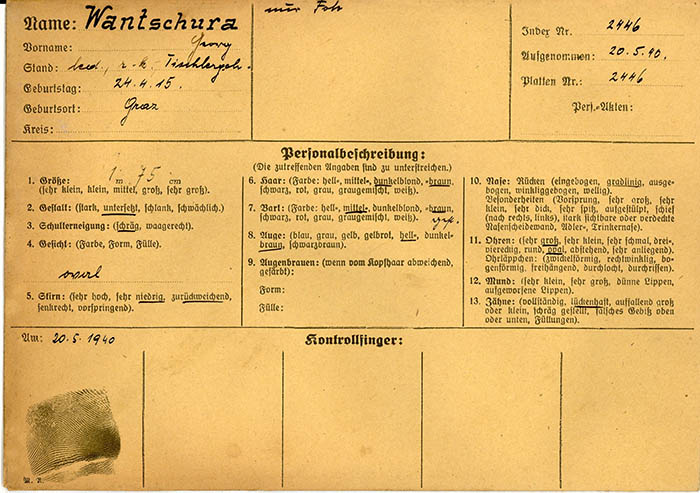 Name: Wantschura
Vorname: Georg
Stand: led., r.-k. Tischlergeh.
Geburtstag: 24.4.15.
Geburtsort: Graz
Kreis:
nur Foto
Index Nr. 2446
Aufgenommen: 20.5.40.
Platten Nr.: 2446
Pers.-Akten:
Personalbeschreibung:
(Die zutreffenden Angaben sind zu unterstreichen.)
1. Größe: 1 m 75 cm
(sehr klein, klein, mittel, groß, sehr groß).
2. Gestalt: (stark, untersetzt, schlank, schwächlich).
3. Schulterneigung: (schräg, waagerecht).
4. Gesicht: (Farbe, Form, Fülle).
oval
5. Stirn: (sehr hoch, sehr niedrig, zurückweichend,
senkrecht, vorspringend).
6. Haar: (Farbe: hell-, mittel-, dunkelblond, -braun,
schwarz, rot, grau, graugemischt, weiß).
7. Bart: (Farbe: hell-, mittel-, dunkelblond, -braun,
schwarz, rot, grau, graugemischt, weiß).
8. Auge: (blau, grau, gelb, gelbrot, hell-, dunkel-
braun, schwarzbraun).
9. Augenbrauen: (wenn vom Kopfhaar abweichend,
gefärbt):
Form:
Fülle:
10. Nase: Rücken (eingebogen, gradlinig, ausge-
bogen, winkliggebogen, wellig).
Besonderheiten (Vorsprung, sehr groß, sehr
klein, sehr dick, sehr spitz, aufgestülpt, schief
(nach rechts, links), stark sichtbare oder verdeckte
Nasenscheidewand, Adler-, Trinkernase).
11. Ohren: (sehr groß, sehr klein, sehr schmal, drei-
viereckig, rund, oval, abstehend, sehr anliegend).
Ohrläppchen: (zwickelförmig, rechtwinklig, bo-
genförmig, freihängend, durchlocht, durchrissen).
12. Mund: (sehr klein, sehr groß, dünne Lippen,
aufgeworfene Lippen).
13. Zähne: (vollständig, lückenhaft, auffallend groß
oder klein, schräg gestellt, falsches Gebiß oben
oder unten, Füllungen).
Am: 20.5.1940
Kontrollfinger: